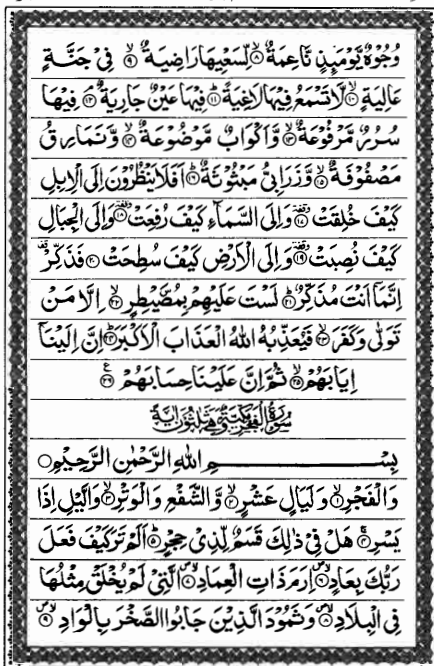 وُجُوۡهٌ يَّوۡمَئِذٍ نَّاعِمَةٌ ۙ‏﴿۸﴾ لِّسَعۡيِهَا رَاضِيَةٌ ۙ‏﴿۹﴾ فِىۡ جَنَّةٍ
عَالِيَةٍ ۙ‏﴿۱۰﴾ لَّا تَسۡمَعُ فِيۡهَا لَاغِيَةً ؕ‏﴿۱۱﴾ فِيۡهَا عَيۡنٌ جَارِيَةٌ ۘ‏﴿۱۲﴾ فِيۡهَا
سُرُرٌ مَّرۡفُوۡعَةٌ ۙ‏﴿۱۳﴾ وَّاَكۡوَابٌ مَّوۡضُوۡعَةٌ ۙ‏﴿۱۴﴾ وَّنَمَارِقُ
مَصۡفُوۡفَةٌ ۙ‏﴿۱۵﴾ وَّزَرَابِىُّ مَبۡثُوۡثَةٌ ؕ‏﴿۱۶﴾ اَفَلَا يَنۡظُرُوۡنَ اِلَى الۡاِبِلِ
كَيۡفَ خُلِقَتۡ ‏﴿۱۷﴾ وَاِلَى السَّمَآءِ كَيۡفَ رُفِعَتۡ ‏﴿۱۸﴾ وَاِلَى الۡجِبَالِ
كَيۡفَ نُصِبَتۡ ‏﴿۱۹﴾ وَاِلَى الۡاَرۡضِ كَيۡفَ سُطِحَتۡ ‏﴿۲۰﴾ فَذَكِّرۡ
اِنَّمَاۤ اَنۡتَ مُذَكِّرٌ ؕ‏﴿۲۱﴾ لَسۡتَ عَلَيۡهِمۡ بِمُصَۜيۡطِرٍ ۙ‏﴿۲۲﴾ اِلَّا مَنۡ
تَوَلّٰى وَكَفَرَ ۙ‏﴿۲۳﴾ فَيُعَذِّبُهُ اللّٰهُ الۡعَذَابَ الۡاَكۡبَرَ ؕ‏﴿۲۴﴾ اِنَّ اِلَيۡنَاۤ
اِيَابَهُمۡ ۙ‏﴿۲۵﴾ ثُمَّ اِنَّ عَلَيۡنَا حِسَابَهُمۡ ‏﴿۲۶﴾
سُوۡرَةُ الۡفَجۡرِ مَكِّيَّةٌ وَّهِىَ ثَلٰثُوۡنَ اٰيَةً
بِسۡمِ اللّٰهِ الرَّحۡمٰنِ الرَّحِيۡمِ
وَالۡفَجۡرِ ۙ‏﴿۱﴾ وَلَيَالٍ عَشۡرٍ ۙ‏﴿۲﴾ وَّالشَّفۡعِ وَالۡوَتۡرِ ۙ‏﴿۳﴾ وَالَّيۡلِ اِذَا
يَسۡرِ ۚ‏﴿۴﴾ هَلۡ فِىۡ ذٰلِكَ قَسَمٌ لِّذِىۡ حِجۡرٍ ؕ‏﴿۵﴾ اَلَمۡ تَرَ كَيۡفَ فَعَلَ
رَبُّكَ بِعَادٍ ۙ‏﴿۶﴾ اِرَمَ ذَاتِ الۡعِمَادِ ۙ‏﴿۷﴾ الَّتِىۡ لَمۡ يُخۡلَقۡ مِثۡلُهَا
فِى الۡبِلَادِ ۙ‏﴿۸﴾ وَثَمُوۡدَ الَّذِيۡنَ جَابُوا الصَّخۡرَ بِالۡوَادِ ۙ‏﴿۹﴾